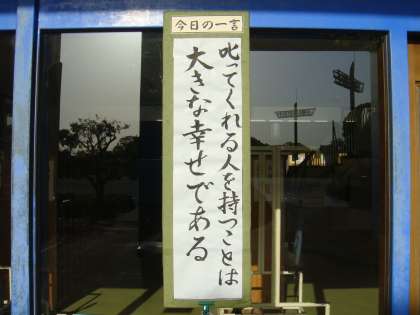 今日の一言
叱ってくれる人を持つことは
大きな幸せである